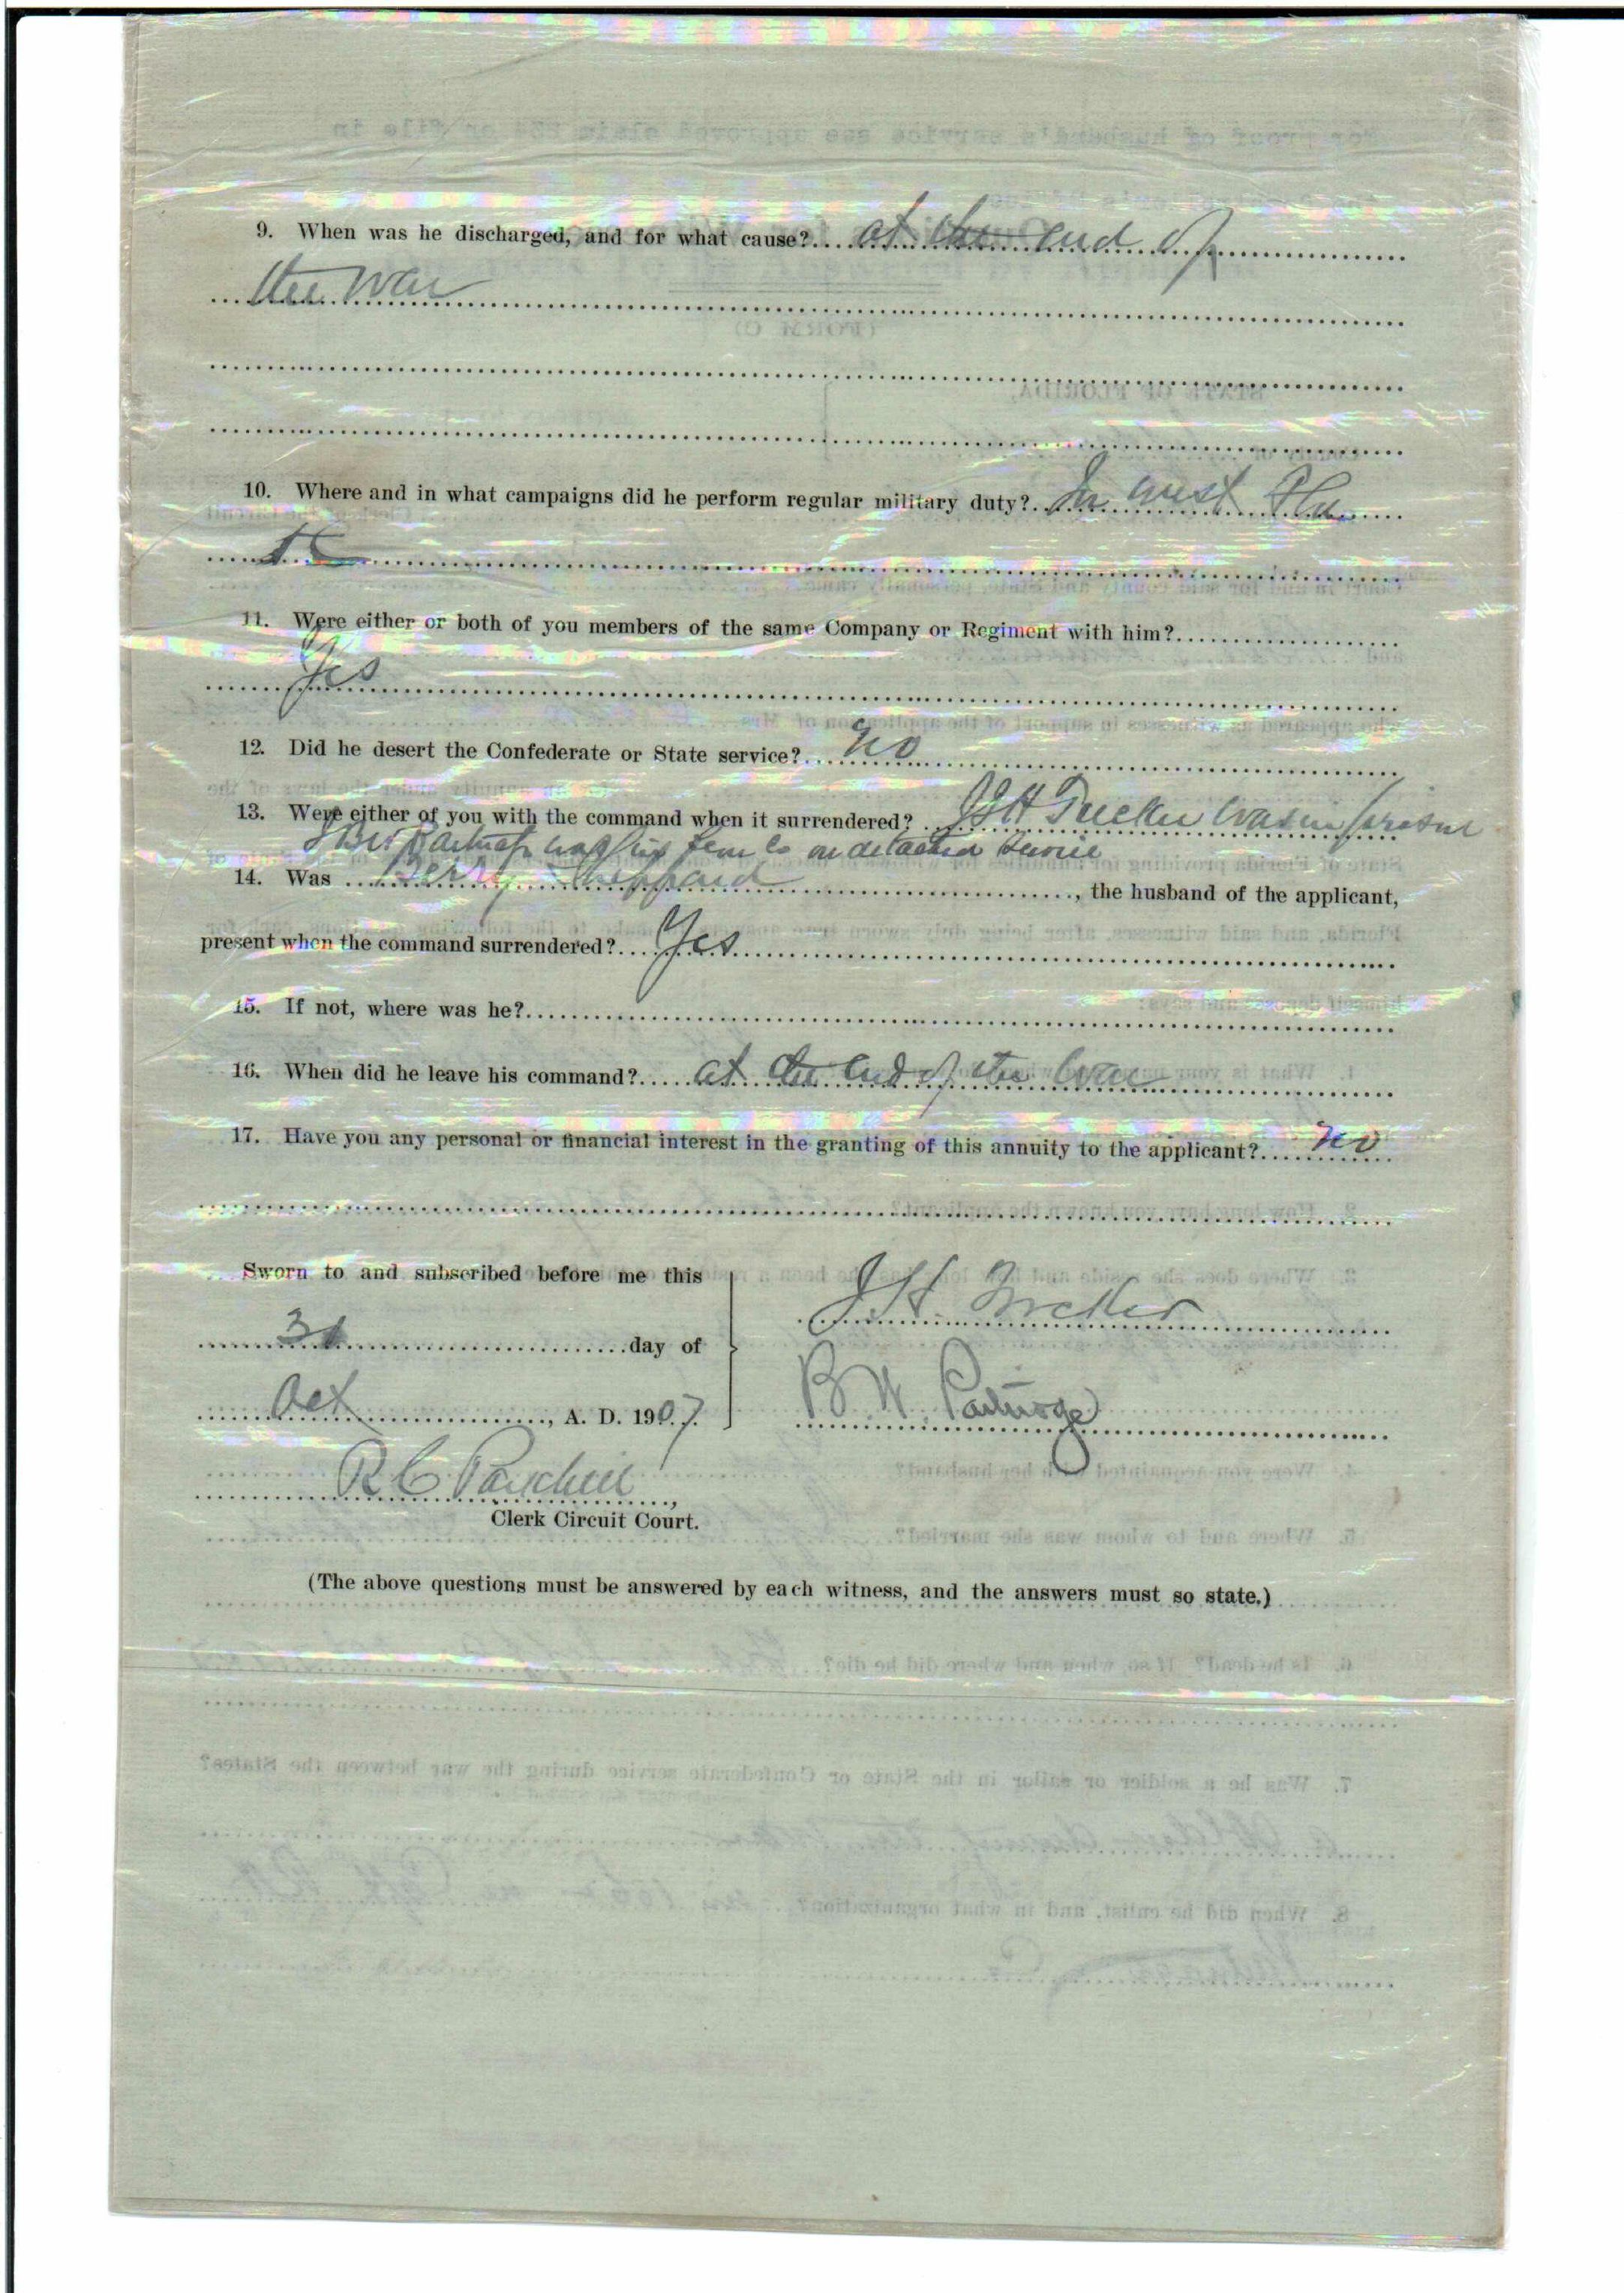 9. When was he discharged, and for what cause? at the end of
the war
10. Where and in what campaigns did he perform regular military duty? In west Fla
11. Were either or both of you members of the same Company or Regiment with him?
Yes
12. Did he desert the Confederate or State service? no
13. Were either of you with the command when it surrendered? J H Tucker was in prison
on detached service
14. Was Berry Sheppard, the husband of the applicant,
present when the command surrendered? Yes
15. If not, where was he?
16. When did he leave his command? at the end of the War
17. Have you any personal or financial interest in the granting of this annuity to the applicant? no
Sworn to and subscribed before me this
31 day of
Oct, A. D. 1907.
J H. Tucker
B. W. Partridge
R C Parkhill,
Clerk Circuit Court.
(The above questions must be answered by each witness, and the answers must so state.)